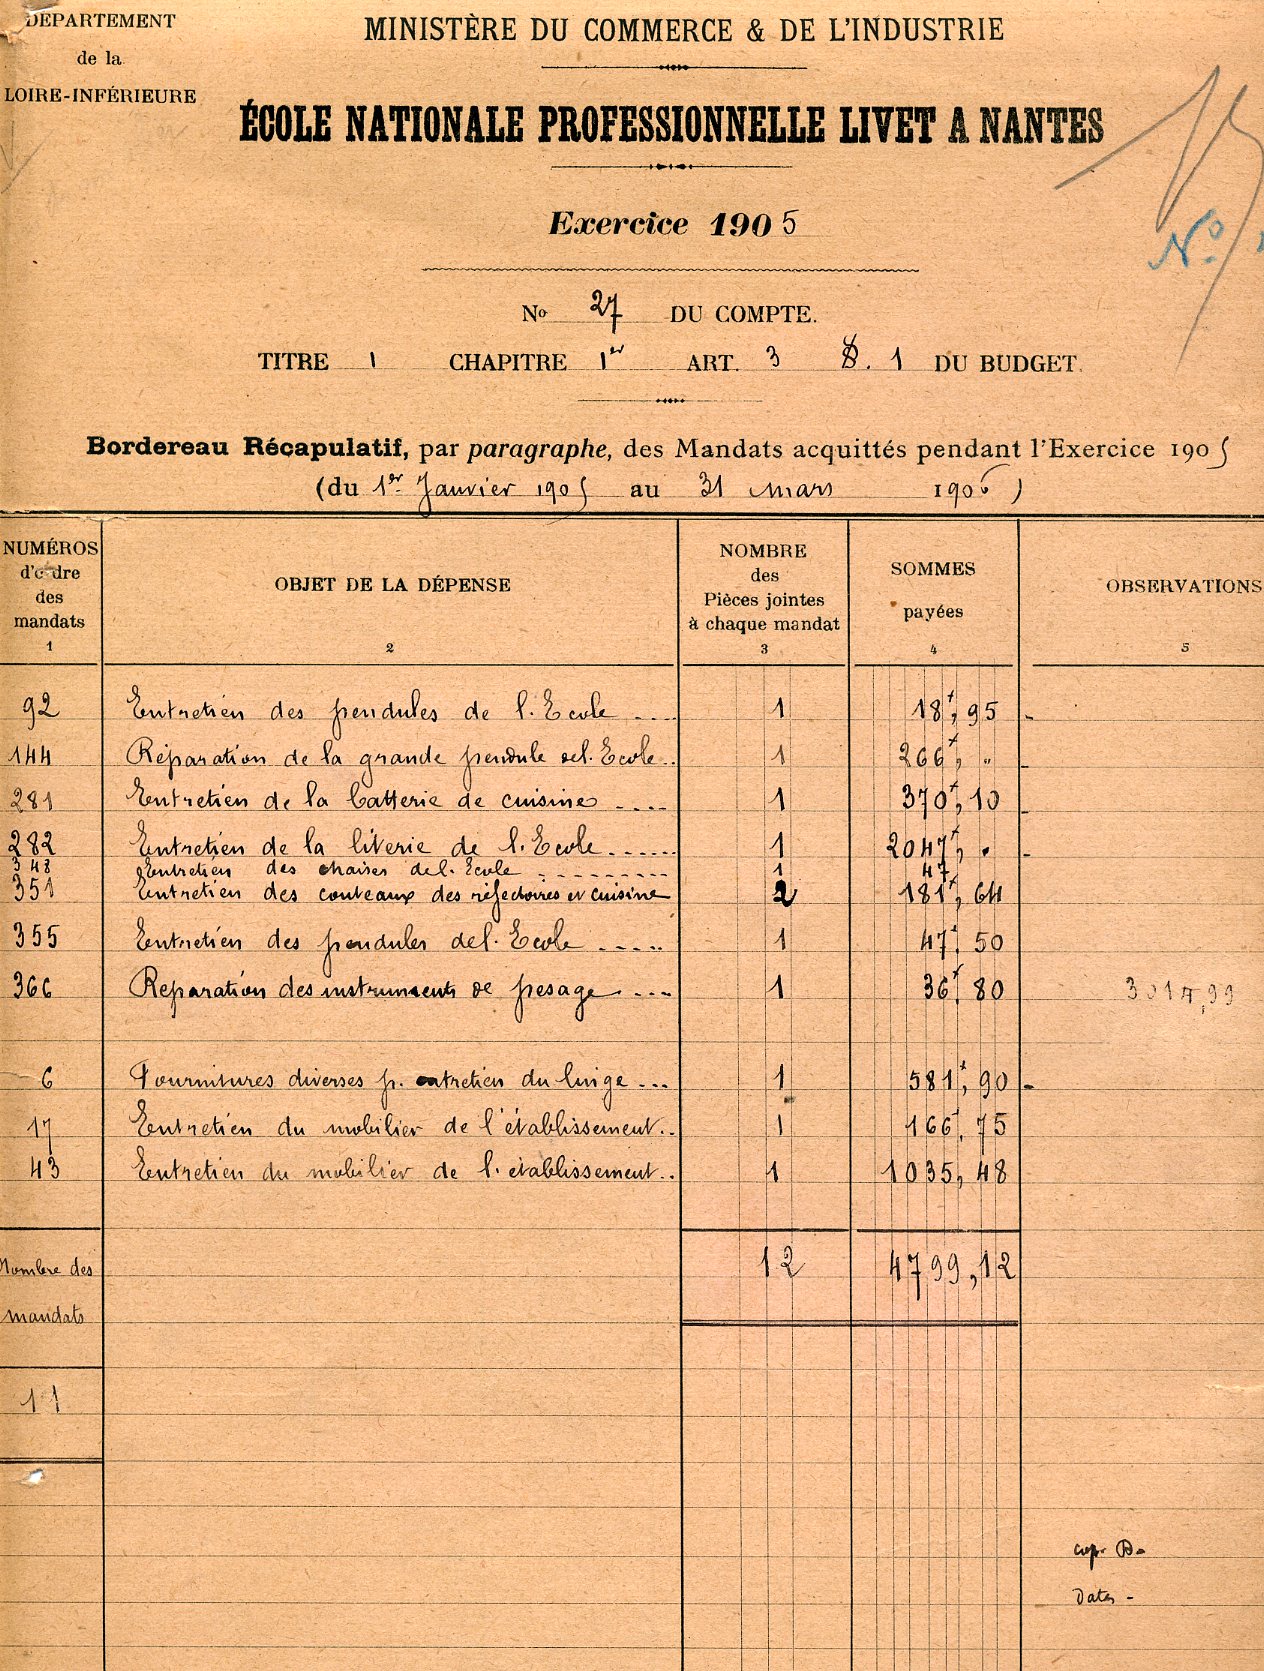 DÉPARTEMENT
de la
LOIRE-INFÉRIEURE
MINISTÈRE DU COMMERCE & DE L'INDUSTRIE
ÉCOLE NATIONALE PROFESSIONNELLE LIVET A NANTES
Exercice 1905
No
No 27 DU COMPTE.
TITRE 1 CHAPITRE 1er ART. 3 §. 1 DU BUDGET.
Bordereau Récapulatif, par paragraphe, des Mandats acquittés pendant l'Exercice 1905
(du 1er Janvier 1905 au 31 mars 1906)
NUMÉROS d'ordre des mandats 1
OBJET DE LA DÉPENSE 2
NOMBRE des Pièces jointes à chaque mandat 3
SOMMES payées 4
OBSERVATIONS 5
92 Entretien des pendules de l'Ecole .... 1 18, 95
144 Réparation de la grande pendule de l'Ecole .. 1 266, "
281 Entretien de la batterie de cuisine .... 1 370, 10
282 Entretien de la literie de l'Ecole ...... 1 2047, "
348 Entretien des chaises de l'Ecole ......... 1 47
351 Entretien des couteaux des réfectoires et cuisine 2 181, 64
355 Entretien des pendules de l'Ecole ..... 1 47, 50
366 Reparation des instruments de pesage .... 1 36, 80
3014,99
6 Fournitures diverses p. entretien du linge ... 1 581, 90
17 Entretien du mobilier de l'établissement .. 1 166, 75
43 Entretien du mobilier de l'établissement .. 1 1035, 48
Nombre des mandats
12 4799,12
11
Dates -